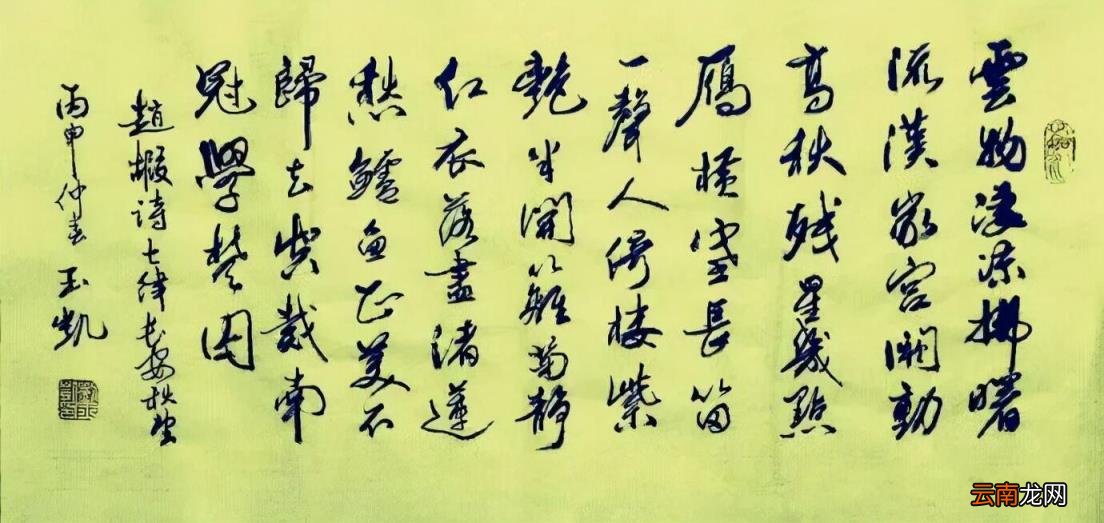 雲物淒涼拂曙
流漢家宮闕動
高秋残星幾點
鴈橫塞長笛
一聲人倚樓紫
艷半開籬菊靜
紅衣落盡渚蓮
愁鱸魚正美不
歸去空戴南
冠學楚囚
趙嘏詩七律長安秋望
丙申仲春 玉凱
云南龙网